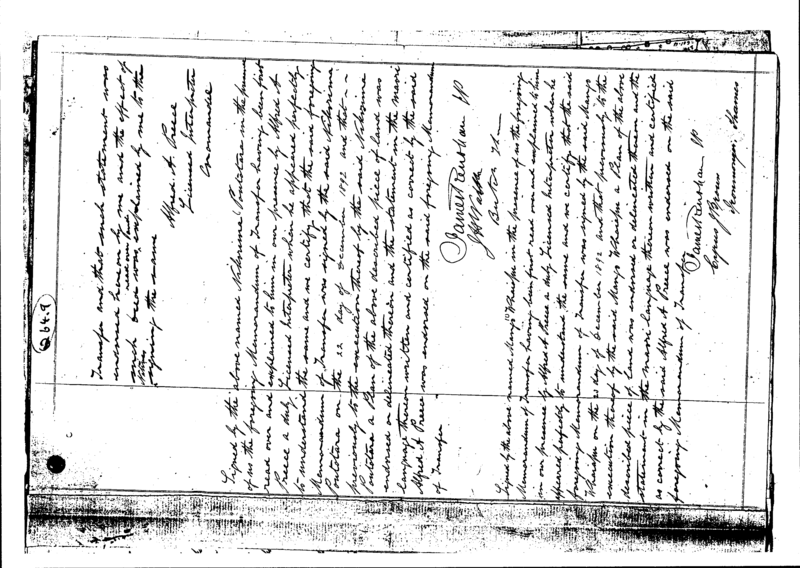 264.9
Transfer and that such statement was
endorsed hereon by me and the effect of
such was explained by me to the
signing the same
Alfred A Preece
Licensed Interpreter
Coromandel
Signed by the above named Potatara in the presence
of us the foregoing Memorandum of Transfer having been first
read over and explained to him in our presence by Alfred A
Preece a duly Licensed Interpreter when he appeared perfectly
to understand the same and we certify that the said foregoing
Memorandum of Transfer was signed by the said
Potatara on the 22 day of December 1892 and that
previously to the execution thereof by the said
Potatara a Plan of the above described piece of land was
endorsed or delineated thereon and the statement in the maori
language thereon written and certified as correct by the said
Alfred A Preece was endorsed on the said foregoing Memorandum
of Transfer
JP
Signed by the above named in the presence of us the foregoing
Memorandum of Transfer having been first read over and explained to him
in our presence by Alfred A Preece a duly Licensed Interpreter when he
appeared perfectly to understand the same and we certify that the said
foregoing Memorandum of Transfer was signed by the said
on the 23 day of December 1892 and that previously to the
execution thereof by the said a Plan of the above
described piece of land was endorsed or delineated thereon and the
statement in the maori language thereon written and certified
as correct by the said Alfred A Preece was endorsed on the said
foregoing Memorandum of Transfer
JP
Thames